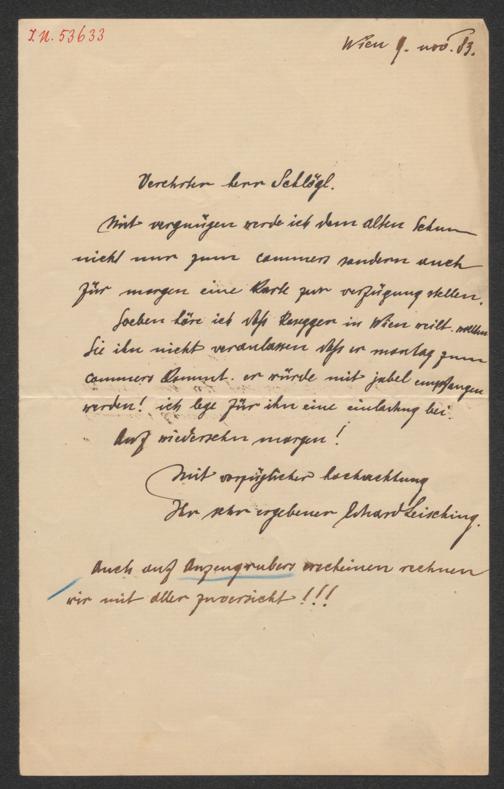 I.N. 53633
Wien 9. nov. 83.
Verehrter herr Schlögl.
Mit vergnügen werde ich dem alten
nicht nur zum commers sondern auch
für morgen eine Karte zur verfügung stellen.
Soeben höre ich daß Rosegger in Wien weilt. wollen
Sie ihn nicht veranlassen daß er montag zum
commers kommt. er würde mit jubel empfangen
werden! ich lege für ihn eine einladung bei.
Auf wiedersehn morgen!
Mit vorzüglicher hochachtung
Ihr sehr ergebener Eduard Leisching.
Auch auf Anzengrubers erscheinen rechnen
wir mit aller zuversicht!!!